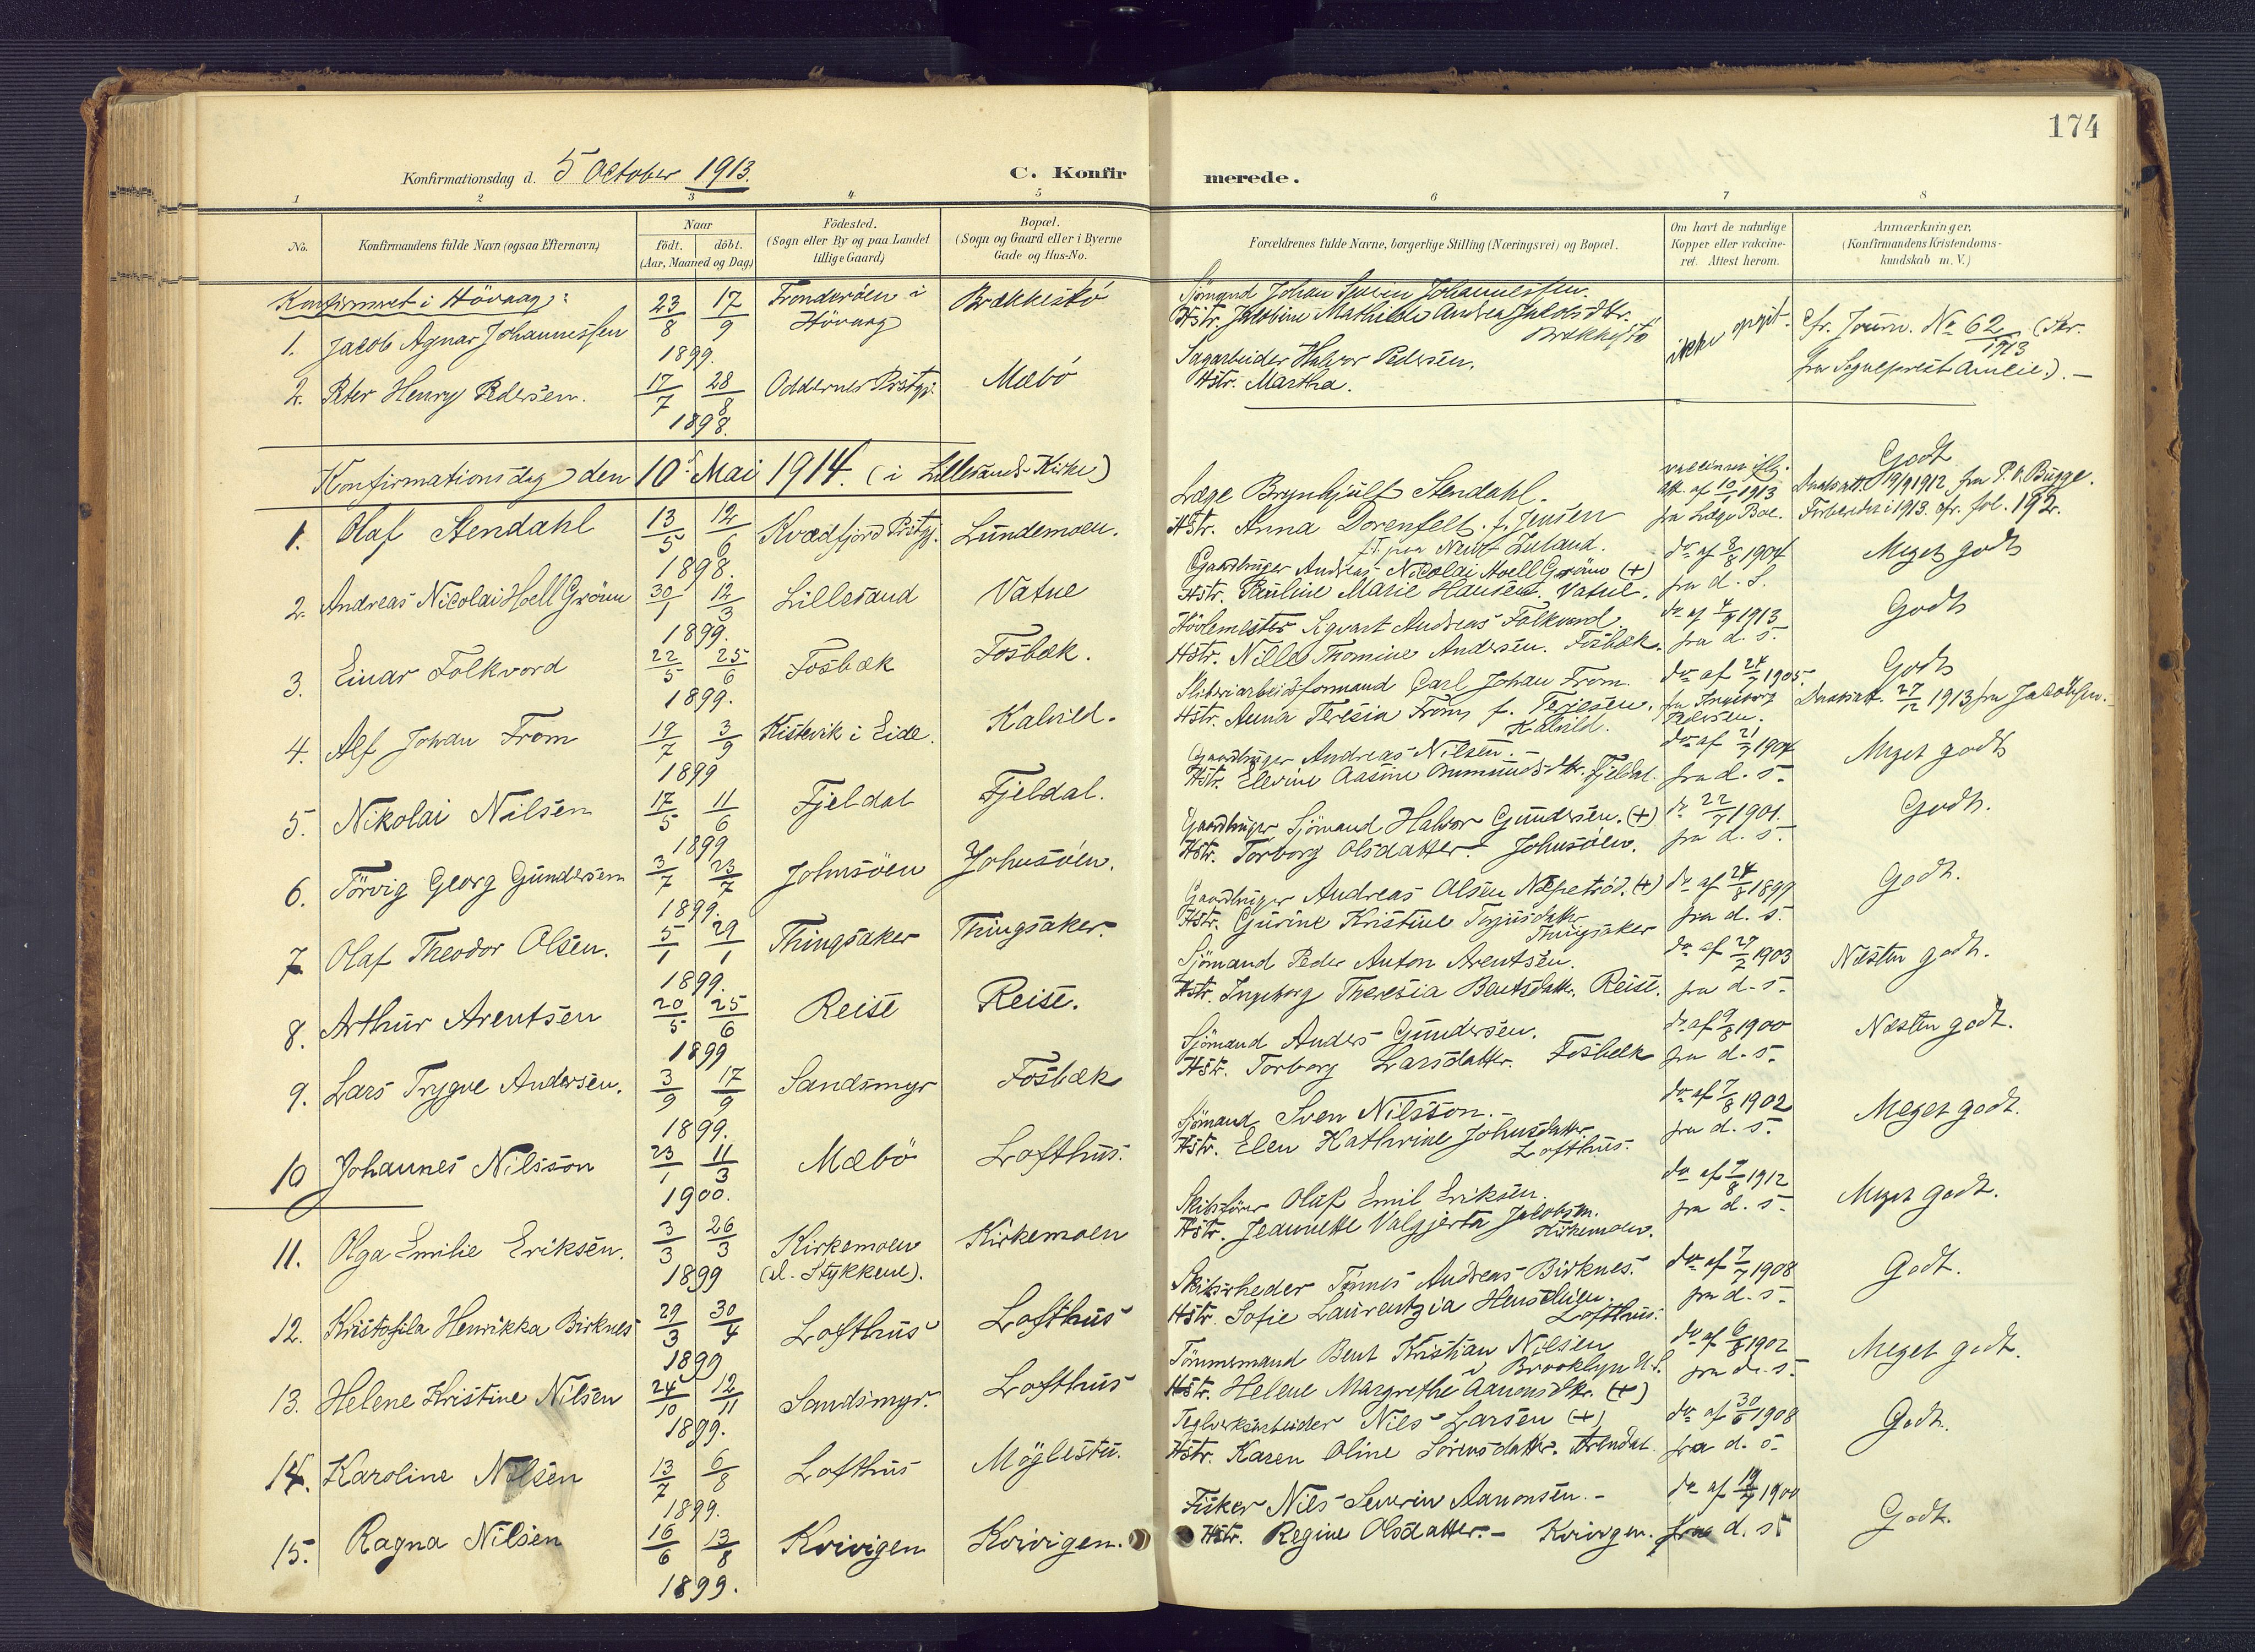 174
Konfirmationsdag d. 5 October 1913. C. Konfirmerede.
1 2 3 4 5 6 7 8
No. Konfirmandens fulde Navn (ogsaa Efternavn) Naar födt. döbt. (Aar, Maaned og Dag) Födested. (Sogn eller By og paa Landet tillige Gaard) Bopæl. (Sogn og Gaard eller i Byerne Gade og Hus-No. Forældrenes fulde Navne, borgerlige Stilling (Næringsvei) og Bopæl. Om havt de naturlige Kopper eller vakcineret. Attest herom. Anmærkninger, (Konfirmandens Kristendomskundskab m. V.)
Konfirmeret i Hövaag:
1. Jacob Agnar Johannessen 23/8 17/9 1899. i Hövaag Brækkestö
Sjömand Johan Johannessen.
Hstr. Jakobine Mathilde Andrea Jakobsdtr. Brækkestö
ikke opgit. cfr. Journ. No 62/1913 (Skr. fra Sogneprest Amlie). –
2. Peter Henry Pedersen. 17/7 28/8 1898. Oddernes Prstgj. Mæbö
Sagarbeider Halvor Pedersen.
Hstr. Martha.
Konfirmationsdag den 10de Mai 1914. (i Lillesands Kirke)
1. Olaf Stendahl 13/5 12/6 1898. Kvædfjord Prstgj. Lundemoen.
Læge Brynhjulf Stendahl.
Hstr. Anna Dorenfelt f. Jensen
af 10/1 1913 fra Læge Boe. Godt Daabsatt. 19/9 1912 fra P. V. Bugge. Forberedet i 1913. cfr. fol. 192.
2. Andreas Nicolai Hoell Grönn 30/1 12/3 1899. Lillesand Vatne
Gaardbruger Andreas Nicolai Hoell Grönn (+)
Hstr. Pauline Marie Hansen. Vatne.
do af 8/8 1904 fra d. s. Meget godt
3. Einar Folkvord 22/5 25/6 1899. Fosbæk Fosbæk.
Hövlemester Sigvart Andreas Folkvord.
Hstr. Nille Thomine Andersen. Fosbæk.
do af 4/9 1913 fra d. s. Godt
4. Alf Johan From 19/7 3/9 1899 Kistevik i Eide. Kalvild.
Sliteriarbeidsformand Carl Johan From.
Hstr. Anna Teresia From f. Terjesen. Kalvild.
do af 24/7 1905. fra Ingeborg Pedersen. Godt Daabsatt. 27/12 1913 fra Jakobsen.
5. Nikolai Nilsen 17/5 11/6 1899 Fjeldal Fjeldal.
Gaardbruger Andreas Nilsen.
Hstr. Elevine Aasine Omundsdtr. Fjeldal.
do af 21/7 1904 fra d. s. Meget godt
6. Törvig Georg Gundersen 3/7 23/7 1899. Johnsöen Johnsöen.
Gaardbruger Sjömand Halvor Gundersen. (+)
Hstr. Torborg Olsdatter. Johnsöen.
do 22/7 1901. fra d. s. Godt.
7 Olaf Theodor Olsen. 5/1 29/1 1899. Thingsaker Thingsaker.
Gaardbruger Andreas Olsen Næpetröd. (+)
Hstr. Gurine Kristine Terjusdatter Thingsaker
do af 24/8 1899 fra d. s. Godt.
8. Arthur Arentsen 20/5 25/6 1899 Reise Reise.
Sjömand Peder Anton Arentsen.
Hstr. Ingeborg Theresia Bentsdatter. Reise.
do af 29/7 1903 fra d. s. Næsten godt.
9. Lars Trygve Andersen. 3/9 17/9 1899. Sandsmyr Fosbæk
Sjömand Anders Gundersen.
Hstr. Torborg Larsdatter. Fosbæk
do af 9/8 1900 fra d. s. Næsten godt.
10 Johannes Nilsson 23/1 11/3 1900. Mæbö Lofthus.
Sjömand Sven Nilsson.
Hstr. Elen Kathrine Johnsdatter Lofthus.
do af 7/8 1902 fra d. s. Meget godt.
11. Olga Emilie Eriksen. 3/3 26/3 1899 Kirkemoen (el. Stykkene). Kirkemoen
Skibsförer Olaf Emil Eriksen.
Hstr. Jeannette Valgjerta Jakobsen. Kirkemoen.
do af 7/8 1912 fra d. s. Meget godt.
12. Kristofila Henrikka Birknes 29/3 30/4 1899 Lofthus Lofthus
Skibsrheder Tönnes Andreas Birknes.
Hstr. Sofie Laurentzia Henschien. Lofthus.
do af 7/7 1908 fra d. s. Godt.
13. Helene Kristine Nilsen 24/10 12/11 1899. Sandsmyr. Lofthus
Tömmermand Bent Kristian Nilsen i Brooklyn U.S.
Hstr. Helene Margrethe Aanonsdtr. (+)
do af 6/8 1902 fra d. s. Meget godt.
14. Karoline Nilsen 13/7 6/8 1899. Lofthus Möglestu.
Teglverksarbeider Nils Larsen (+)
Hstr. Karen Oline Sörensdatter. Arendal.
do af 30/6 1908 fra d. s. Godt.
15. Ragna Nilsen 16/6 13/8 1899. Kvivigen Kvivigen.
Fisker Nils Severin Aanonsen. –
Hstr. Regine Olsdatter. – Kvivigen.
do af 1900 fra d. s. Godt.